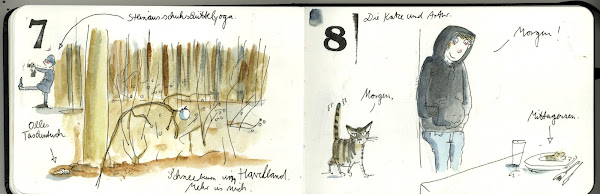 7
Steinausschuhschüttelyoga.
Olles
Taschentuch
Schneebaum vom Havelland.
Mehr is nich.
8
Die Katze und Artur.
Morgen!
Morgen.
Mittagessen.